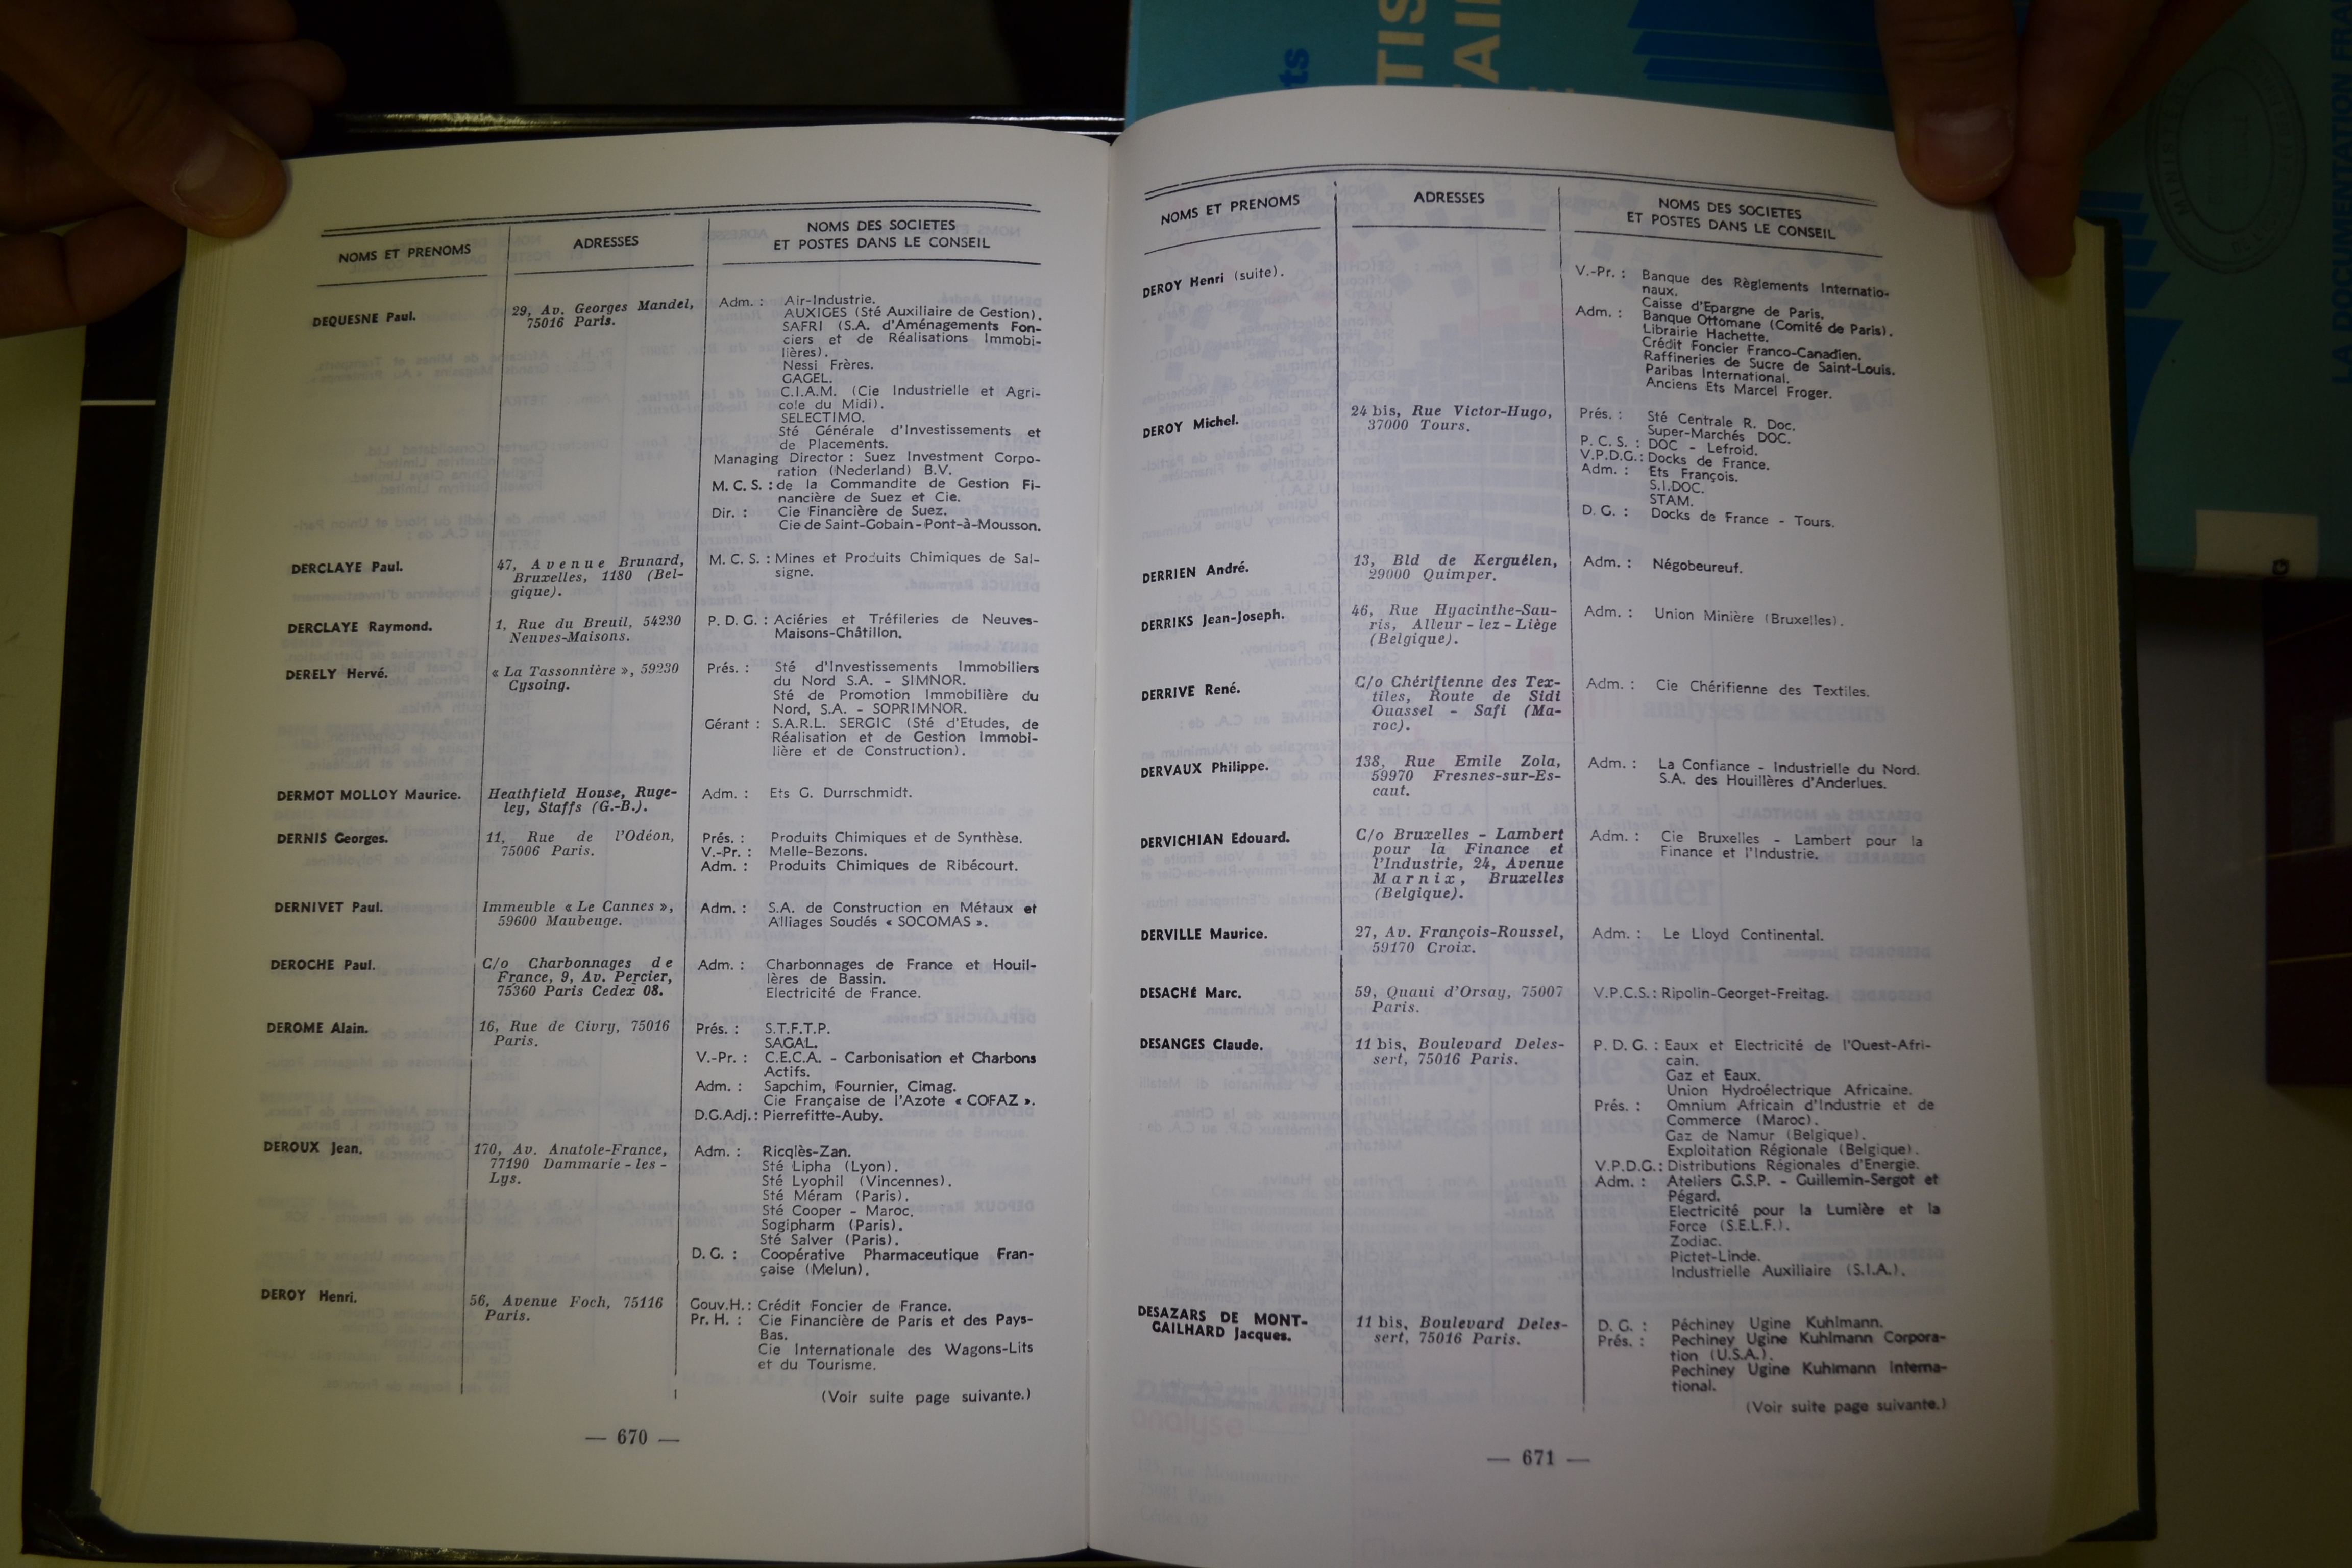 NOMS ET PRENOMS
ADRESSES
NOMS DES SOCIETES
ET POSTES DANS LE CONSEIL
DEQUESNE Paul.
29, Av. Georges Mandel,
75016 Paris.
Adm. : Air-Industrie.
AUXIGES (Sté Auxiliaire de Gestion).
SAFRI (S.A. d'Aménagements Fon-
ciers et de Réalisations Immobi-
lières).
Nessi Frères.
GAGEL.
C.I.A.M. (Cie Industrielle et Agri-
cole du Midi).
SELECTIMO.
Sté Générale d'Investissements et
de Placements.
Managing Director : Suez Investment Corpo-
ration (Nederland) B.V.
M. C. S. : de la Commandite de Gestion Fi-
nancière de Suez et Cie.
Dir. : Cie Financière de Suez.
Cie de Saint-Gobain - Pont-à-Mousson.
DERCLAYE Paul.
47, Avenue Brunard,
Bruxelles, 1180 (Bel-
gique).
M. C. S. : Mines et Produits Chimiques de Sal-
signe.
DERCLAYE Raymond.
1, Rue du Breuil, 54230
Neuves-Maisons.
P. D. G. : Aciéries et Tréfileries de Neuves-
Maisons-Châtillon.
DERELY Hervé.
« La Tassonnière », 59230
Cysoing.
Prés. : Sté d'Investissements Immobiliers
du Nord S.A. - SIMNOR.
Sté de Promotion Immobilière du
Nord, S.A. - SOPRIMNOR.
Gérant : S.A.R.L. SERGIC (Sté d'Etudes, de
Réalisation et de Gestion Immobi-
lière et de Construction).
DERMOT MOLLOY Maurice.
Heathfield House, Ruge-
ley, Staffs (G.-B.).
Adm. : Ets G. Durrschmidt.
DERNIS Georges.
11, Rue de l'Odéon,
75006 Paris.
Prés. : Produits Chimiques et de Synthèse.
V.-Pr. : Melle-Bezons.
Adm. : Produits Chimiques de Ribécourt.
DERNIVET Paul.
Immeuble « Le Cannes »,
59600 Maubeuge.
Adm. : S.A. de Construction en Métaux et
Alliages Soudés « SOCOMAS ».
DEROCHE Paul.
C/o Charbonnages de
France, 9, Av. Percier,
75360 Paris Cedex 08.
Adm. : Charbonnages de France et Houil-
lères de Bassin.
Electricité de France.
DEROME Alain.
16, Rue de Civry, 75016
Paris.
Prés. : S.T.F.T.P.
SAGAL.
V.-Pr. : C.E.C.A. - Carbonisation et Charbons
Actifs.
Adm. : Sapchim, Fournier, Cimag.
Cie Française de l'Azote « COFAZ ».
D.G.Adj.: Pierrefitte-Auby.
DEROUX Jean.
170, Av. Anatole-France,
77190 Dammarie - les -
Lys.
Adm. : Ricqlès-Zan.
Sté Lipha (Lyon).
Sté Lyophil (Vincennes).
Sté Méram (Paris).
Sté Cooper - Maroc.
Sogipharm (Paris).
Sté Salver (Paris).
D. G. : Coopérative Pharmaceutique Fran-
çaise (Melun).
DEROY Henri.
56, Avenue Foch, 75116
Paris.
Gouv.H.: Crédit Foncier de France.
Pr. H. : Cie Financière de Paris et des Pays-
Bas.
Cie Internationale des Wagons-Lits
et du Tourisme.
(Voir suite page suivante.)
— 670 —
NOMS ET PRENOMS
ADRESSES
NOMS DES SOCIETES
ET POSTES DANS LE CONSEIL
DEROY Henri (suite).
V.-Pr. : Banque des Règlements Internatio-
naux.
Caisse d'Epargne de Paris.
Adm. : Banque Ottomane (Comité de Paris).
Librairie Hachette.
Crédit Foncier Franco-Canadien.
Raffineries de Sucre de Saint-Louis.
Paribas International.
Anciens Ets Marcel Froger.
DEROY Michel.
24 bis, Rue Victor-Hugo,
37000 Tours.
Prés. : Sté Centrale R. Doc.
Super-Marchés DOC.
P. C. S. : DOC - Lefroid.
V.P.D.G.: Docks de France.
Adm. : Ets François.
S.I.DOC.
STAM.
D. G. : Docks de France - Tours.
DERRIEN André.
13, Bld de Kerguélen,
29000 Quimper.
Adm. : Négobeureuf.
DERRIKS Jean-Joseph.
46, Rue Hyacinthe-Sau-
ris, Alleur - lez - Liège
(Belgique).
Adm. : Union Minière (Bruxelles).
DERRIVE René.
C/o Chérifienne des Tex-
tiles, Route de Sidi
Ouassel - Safi (Ma-
roc).
Adm. : Cie Chérifienne des Textiles.
DERVAUX Philippe.
138, Rue Emile Zola,
59970 Fresnes-sur-Es-
caut.
Adm. : La Confiance - Industrielle du Nord.
S.A. des Houillères d'Anderlues.
DERVICHIAN Edouard.
C/o Bruxelles - Lambert
pour la Finance et
l'Industrie, 24, Avenue
Marnix, Bruxelles
(Belgique).
Adm. : Cie Bruxelles - Lambert pour la
Finance et l'Industrie.
DERVILLE Maurice.
27, Av. François-Roussel,
59170 Croix.
Adm. : Le Lloyd Continental.
DESACHÉ Marc.
59, Quaui d'Orsay, 75007
Paris.
V.P.C.S.: Ripolin-Georget-Freitag.
DESANGES Claude.
11 bis, Boulevard Deles-
sert, 75016 Paris.
P. D. G. : Eaux et Electricité de l'Ouest-Afri-
cain.
Gaz et Eaux.
Union Hydroélectrique Africaine.
Prés. : Omnium Africain d'Industrie et de
Commerce (Maroc).
Gaz de Namur (Belgique).
Exploitation Régionale (Belgique).
V.P.D.G.: Distributions Régionales d'Energie.
Adm. : Ateliers G.S.P. - Guillemin-Sergot et
Pégard.
Electricité pour la Lumière et la
Force (S.E.L.F.).
Zodiac.
Pictet-Linde.
Industrielle Auxiliaire (S.I.A.).
DESAZARS DE MONT-
GAILHARD Jacques.
11 bis, Boulevard Deles-
sert, 75016 Paris.
D. G. : Péchiney Ugine Kuhlmann.
Prés. : Pechiney Ugine Kuhlmann Corpora-
tion (U.S.A.).
Pechiney Ugine Kuhlmann Interna-
tional.
(Voir suite page suivante.)
— 671 —